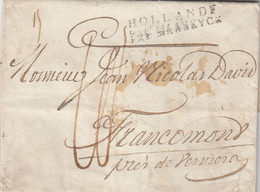 HOLLANDE
PAR MASEYCK
Monsieur Jean Nicolas David
a Francomont
près de Verviers